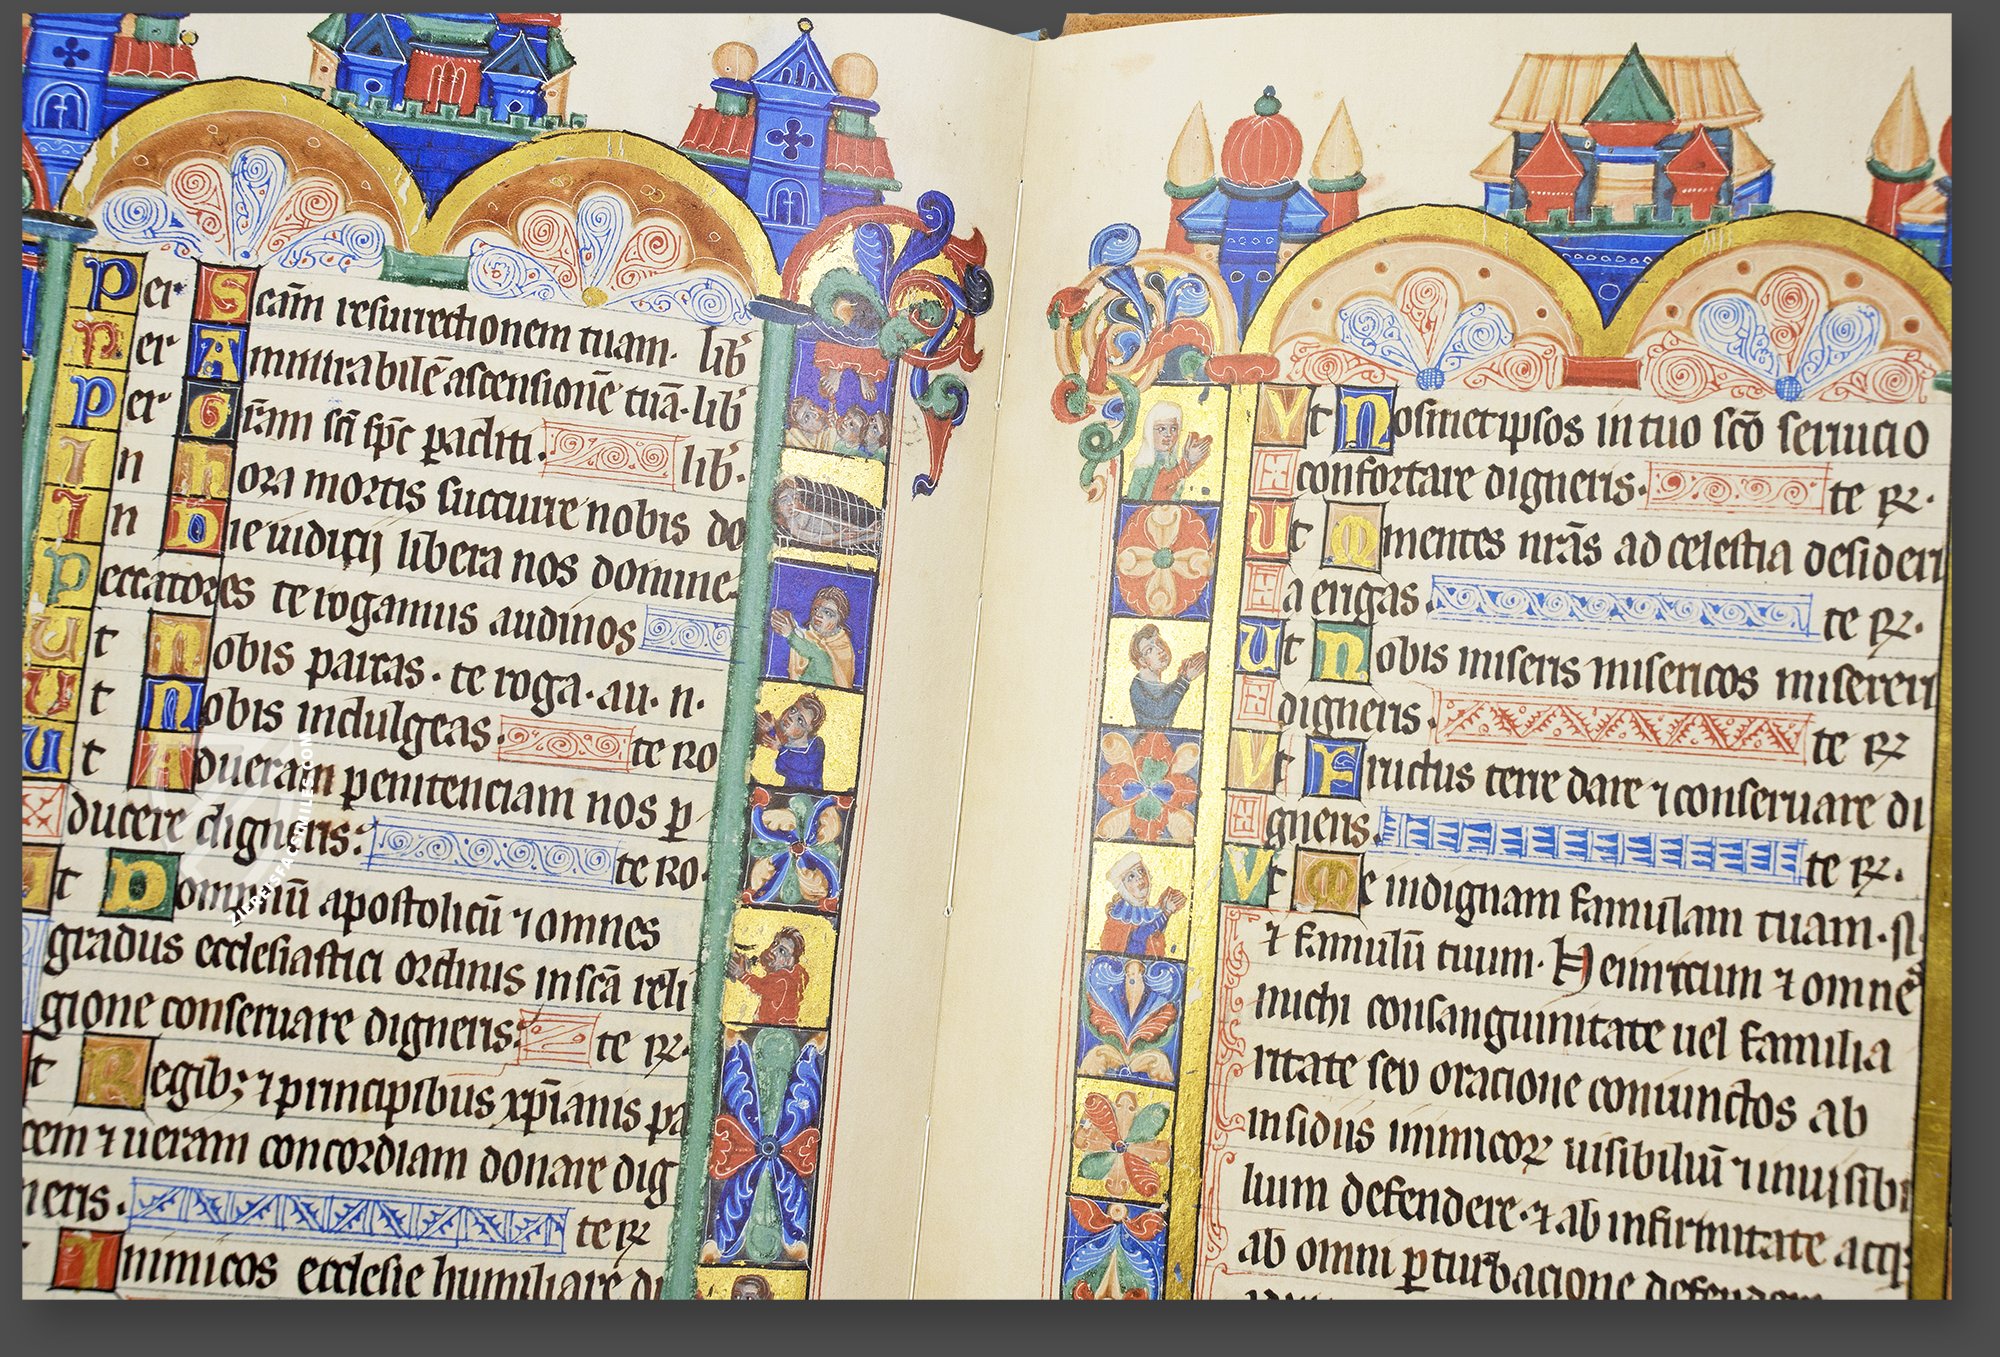 Per Scām resurrectionem tuam. lib̄
Per Ammirabilē ascensionē tuā. lib̄
Per Gr̄am sc̄i sp̄c pacliti. lib̄.
In hora mortis succurre nobis do
In Die iudicij libera nos domine.
Peccatores te rogamus audi nos
Ut Nobis parcas. te roga. au. n.
Ut Nobis indulgeas. te ro
Ut Ad ueram penitenciam nos ꝑ
ducere digneris: te ro.
Ut Dompnū apostolicū ⁊ omnes
gradus ecclesiastici ordinis in scā reli
gione conseruare digneris: te ꝶ.
t Regibꝫ ⁊ principibus xp̄ianis pa
cem ⁊ ueram concordiam donare dig
neris. te ꝶ
Inimicos ecclesie humiliare di
Vt Nosmetipsos in tuo scō seruicio
confortare digneris. te ꝶ.
Ut Mentes nrās ad celestia desideri
a erigas. te ꝶ.
Ut Nobis miseris misericos misereri
digneris. te ꝶ
Vt Fructus terre dare ⁊ conseruare di
gneris. te ꝶ.
Vt Me indignam famulam tuam. N.
⁊ famulū tuum. Heinricum ⁊ omnes
michi consanguinitate uel familia
ritate seu oracione coniunctos ab
insidiis inimicoꝝ uisibiliū ⁊ inuisibi
lium defendere. ⁊ ab infirmitate atq
ab omni ꝑturbacione defendere
ZIEREISFACSIMILES.COM